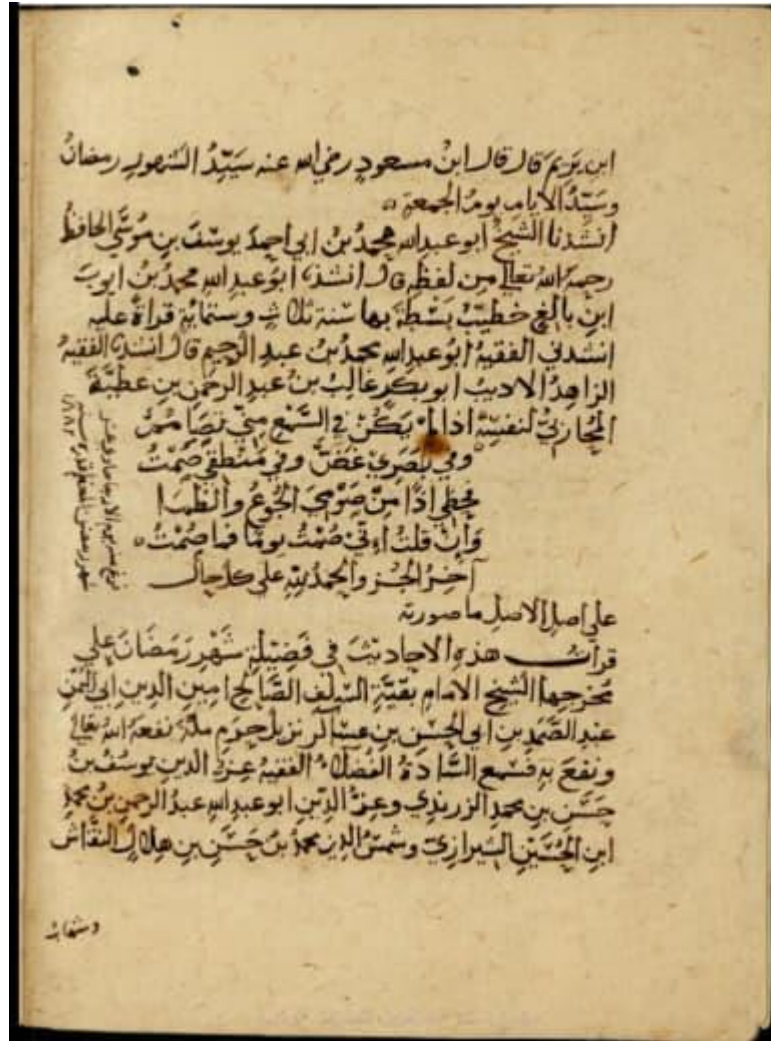 ابن يريم قال قال ابنُ مسعودٍ رضي الله عنه سَيِّدُ الشهورِ رمضانُ
وسَيِّدُ الايامِ يومُ الجمعةِ
انشدنا الشيخُ ابو عبدِ اللهِ محمدُ بنُ ابي احمدَ يوسُفَ بنِ مُوسَى الحافظُ
رحمهُ اللهُ تعالى من لفظِهِ قال انشدنا ابُو عبدِ اللهِ محمدُ بنُ ايوبَ
ابنِ بالغٍ خطيبُ بَسْطَةَ بها سنة ثلاثٍ وستمايةٍ قراةً عليه
انشدني الفقيهُ ابُو عبدِ اللهِ محمدُ بنُ عبدِ الرَّحيمِ قال انشدنا الفقيهُ
الزاهدُ الاديبُ ابو بكرٍ غالبُ بنُ عبدِ الرَّحمنِ بنِ عطيَّةَ
المُحَاربيُّ لنفسِهِ اذا لم يَكُنْ في السَّمْعِ مِنّي تَصَامُمٌ
وفي بَصَرِي غَضٌّ وفي مَنْطِقي صَمْتُ
فحظِّي اذًا مِنْ صَوْمِيَ الجُوعُ والظَّمَا
وَإِنْ قلتُ اِنّي صُمْتُ يومًا فما صُمْتُ
آخِرُ الجُزءِ والحمدُ للهِ على كل حالٍ
على اصلِ الاصلِ ما صورته
قرات هذهِ الاحاديثَ في فَضِيلَةِ شَهْرِ رَمَضَانَ على
مُخرجِها الشيخِ الامامِ بقيَّةِ السَّلَفِ الصَّالحِ امينِ الدينِ ابي اليُمنِ
عبدِ الصَّمَدِ بنِ ابي الحَسَنِ بنِ عساكرَ نزيل حرَمِ مكةَ نفعهُ اللهُ تعالى
ونفعَ بهِ فسَمِعَ السَّادَةُ الفُضَلاءُ الفقيهُ عِزُّ الدينِ يوسُفُ بنُ
حَسَنِ بنِ محمدٍ الزرندي وعِزُّ الدّينِ ابو عبدِ اللهِ عبدُ الرحمنِ بنُ محمدِ
ابنِ الحُسَيْنِ الشيرازيّ وشمسُ الدينِ محمدُ بنُ حَسَنِ بنِ هلالٍ النقَّاش